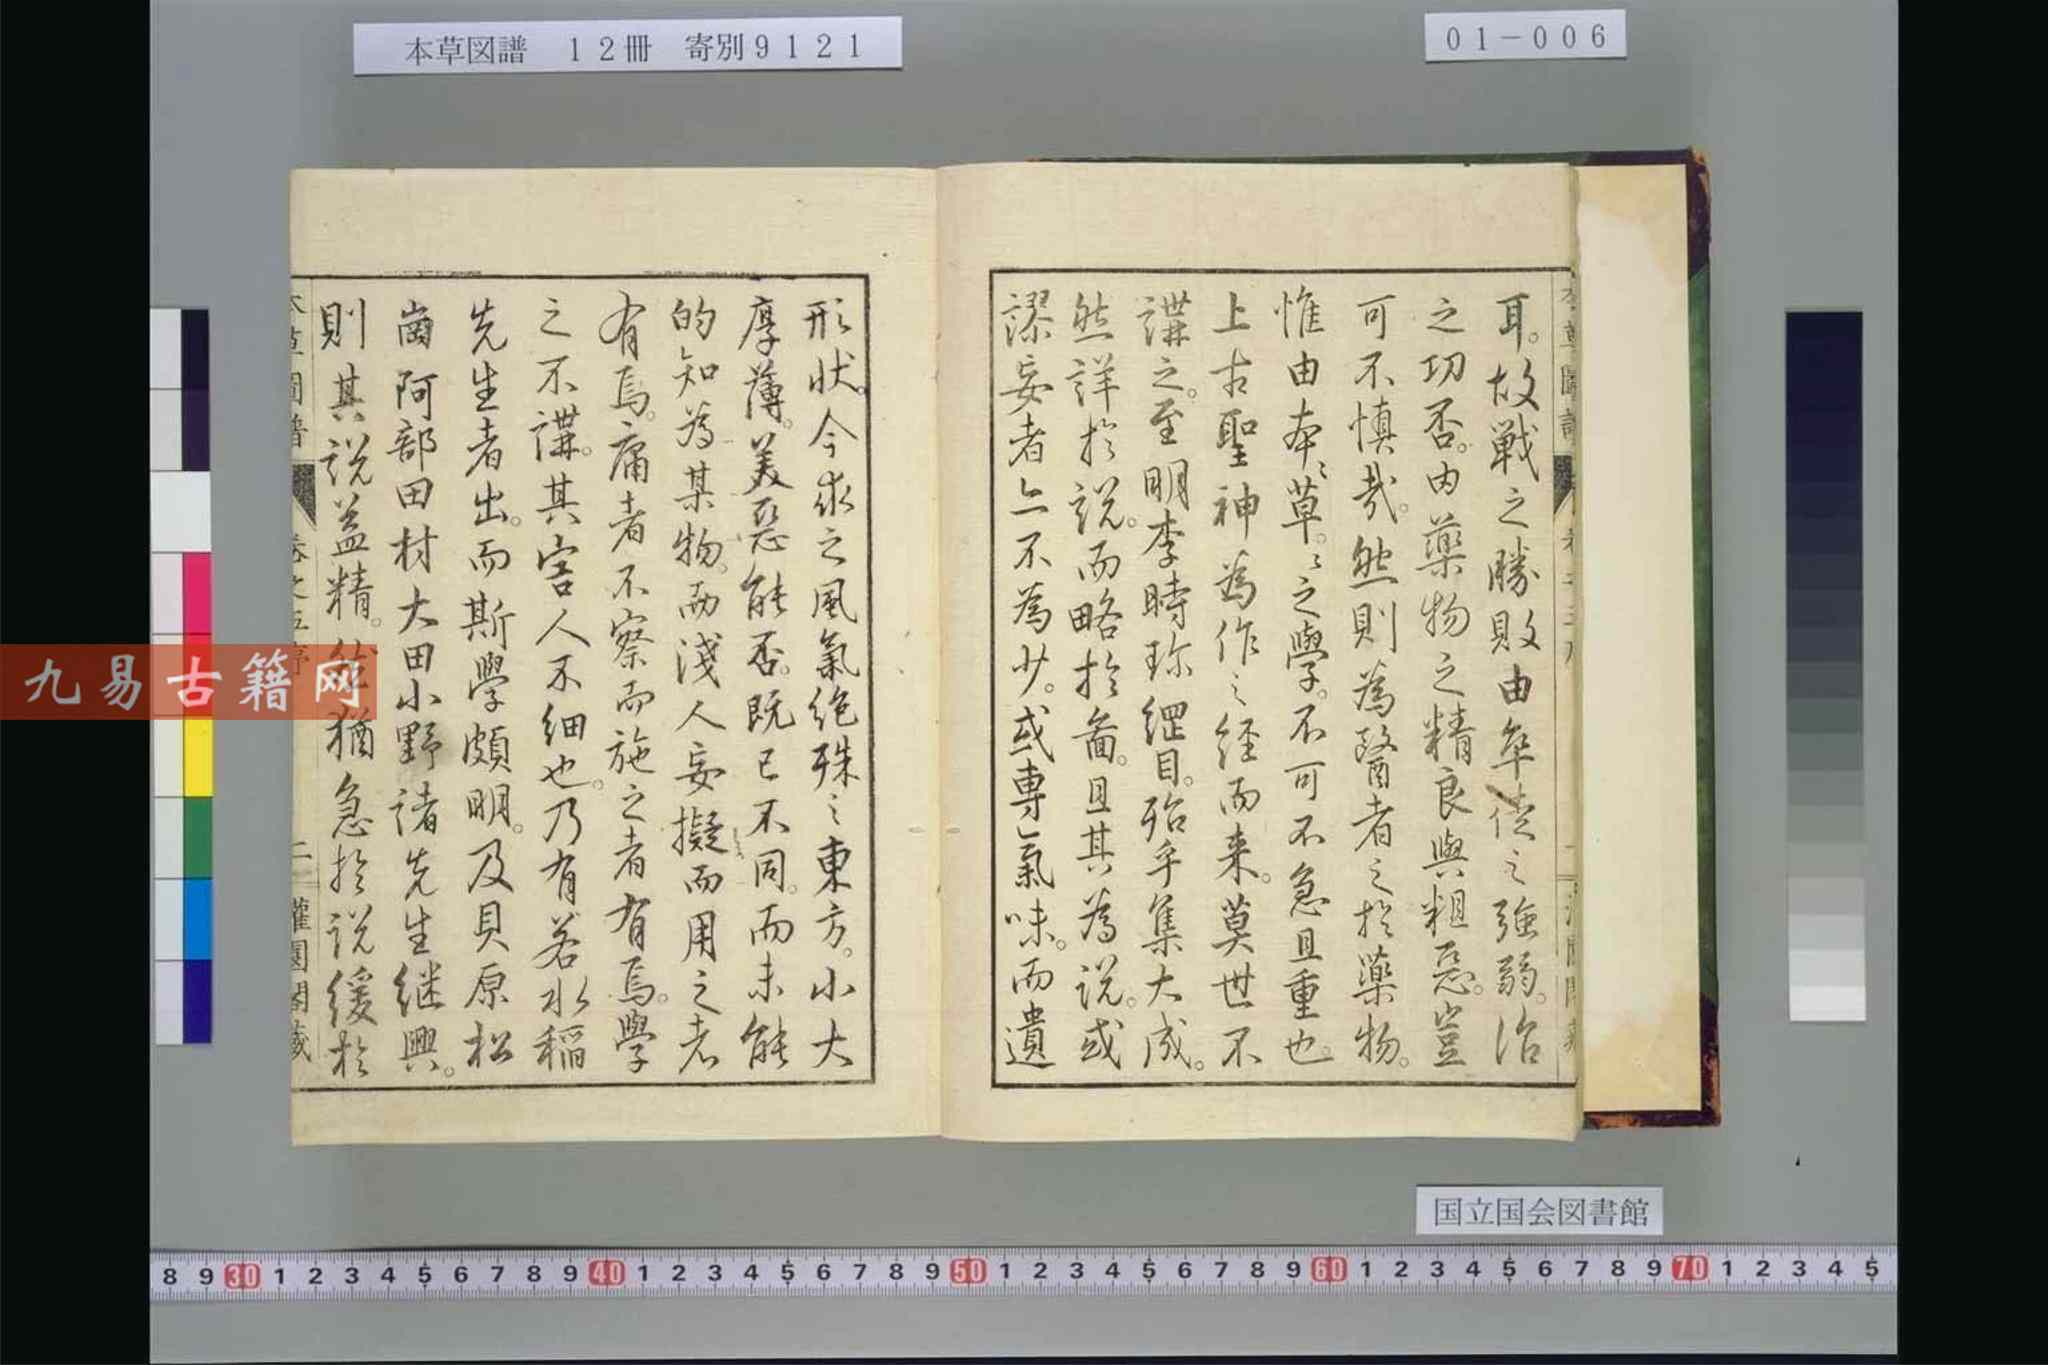 本草図譜　１２冊　寄別９１２１
０１−００６
耳。故戦之勝敗由卒徒之強弱。治
之功否。由藥物之精良與粗惡。豈
可不慎哉。然則為醫者之於藥物。
惟由本〻草。〻之學。不可不急且重也。
上古聖神為作之經而来。莫世不
講之。至明李時珍綱目。殆乎集大成。
然詳於說。而略於啚。且其為說。或
謬妄者亦不為少。或専氣味。而遺
形状。今求之風氣絶殊之東方。小大
厚薄。美惡能否。既已不同。而未能
的知為某物。而淺人妄擬而用之者
有焉。庸者不察而施之者有焉。學
之不講。其害人不細也。乃有若水稲
先生者出。而斯學頗明。及貝原松
岡阿部田村大田小野諸先生継興。
則其説益精。猶急於説緩於
本草圖譜
卷之五序
二
灌園閣藏
九易古籍网
国立国会図書館
8 9 30 1 2 3 4 5 6 7 8 9 40 1 2 3 4 5 6 7 8 9 50 1 2 3 4 5 6 7 8 9 60 1 2 3 4 5 6 7 8 9 70 1 2 3 4 5